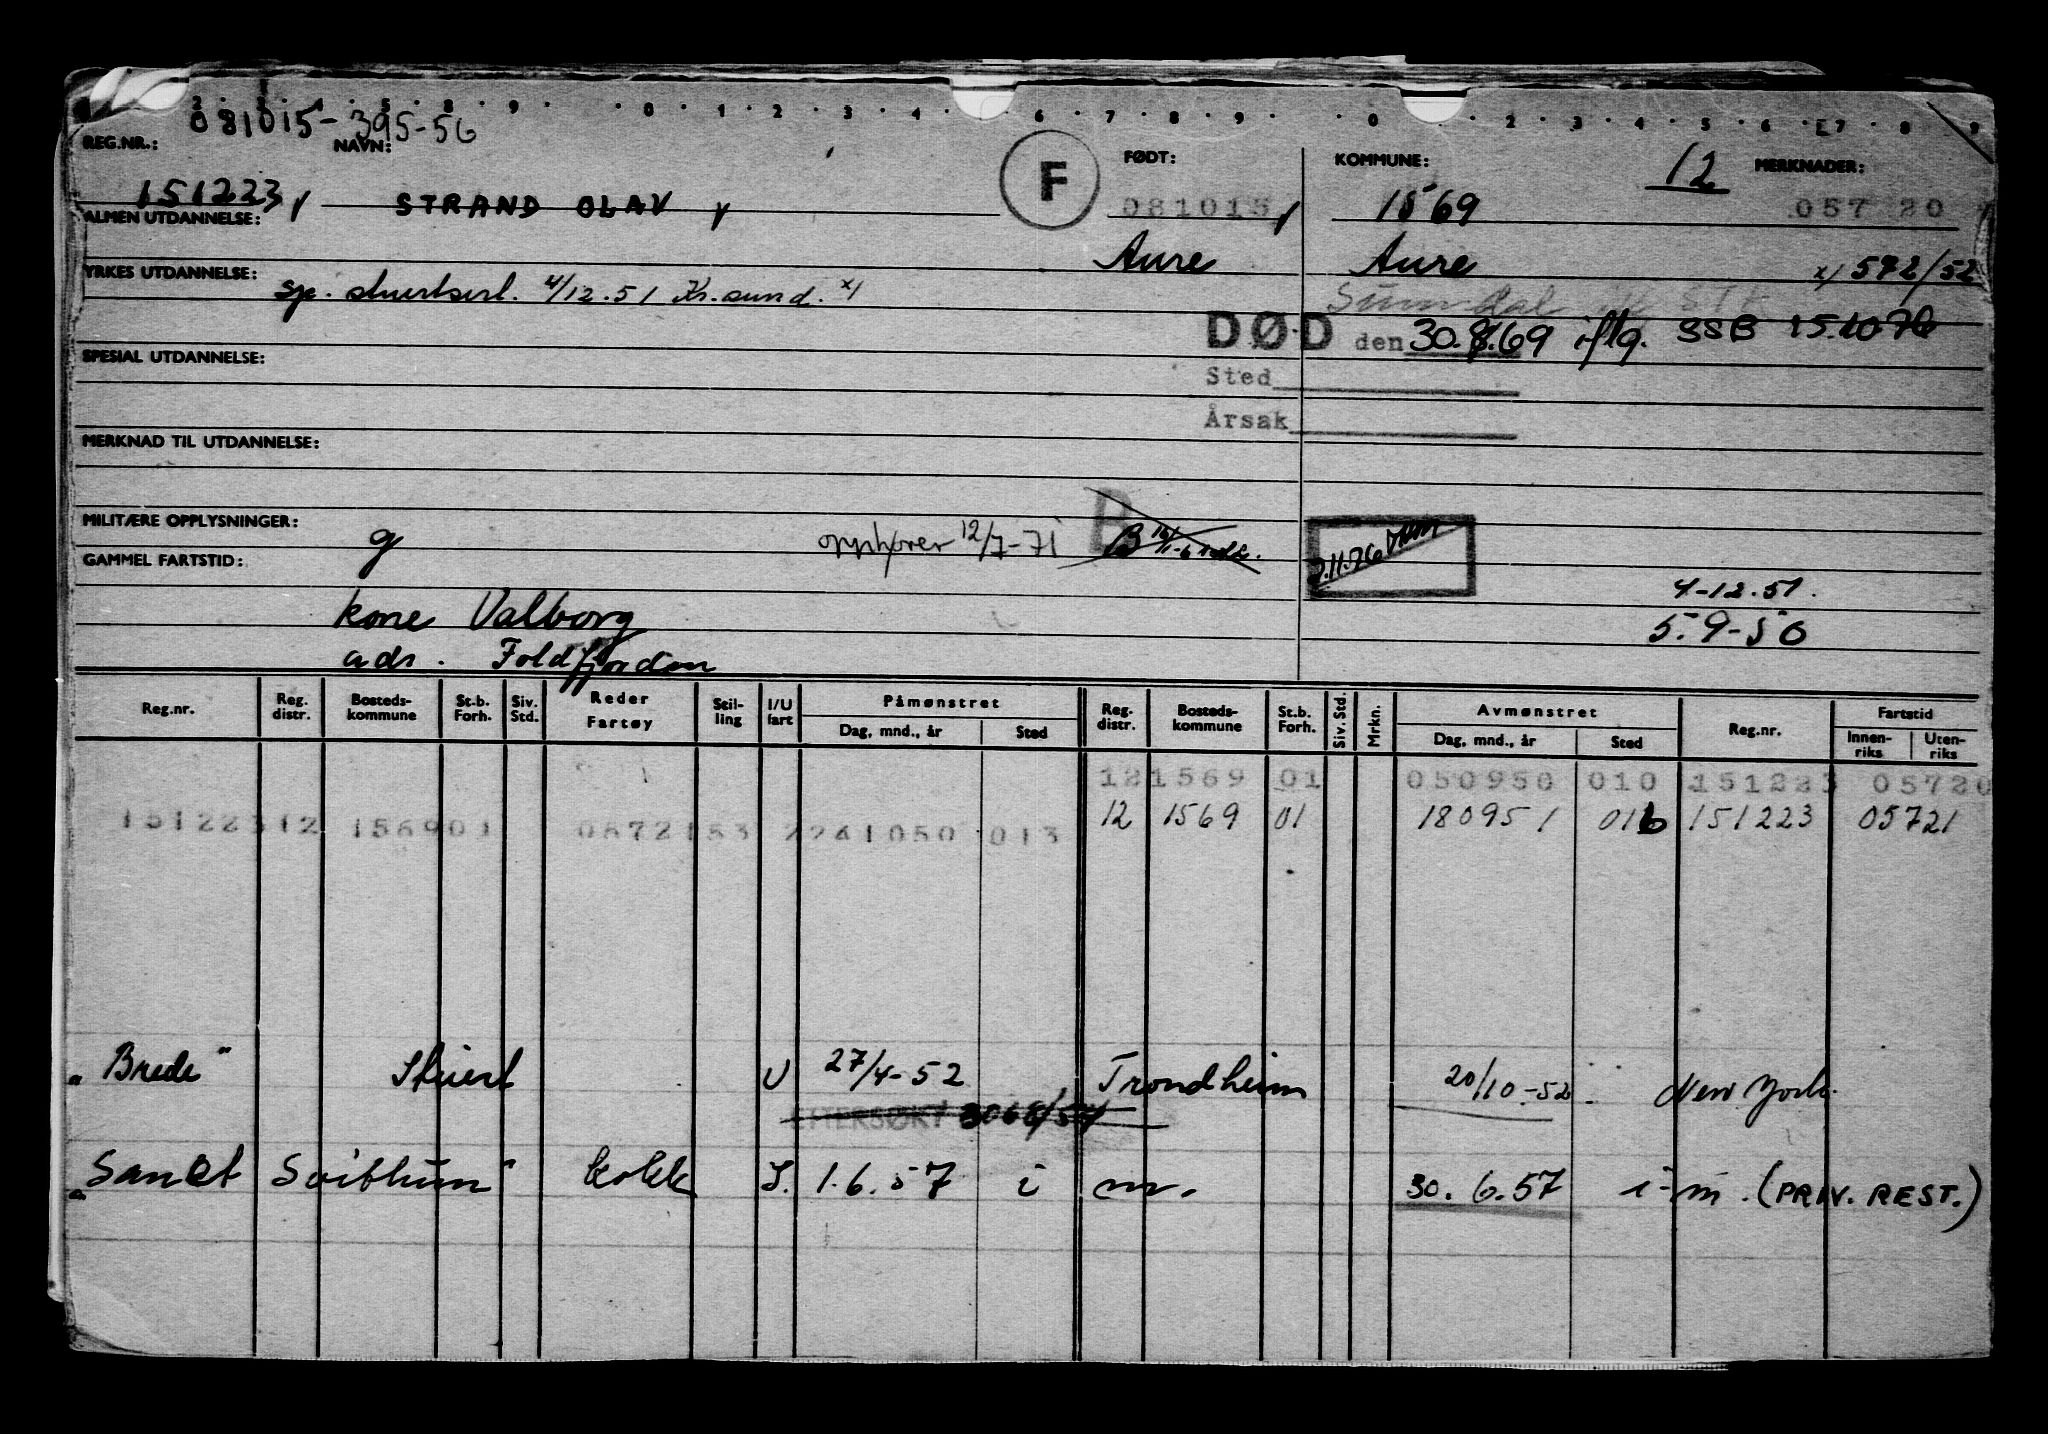 2 · 3 · 4 · 5 · 8 · 9 · · 0 · 1 · 2 · 3 · 4 · · 6 · 7 · 8 · 9 · · 0 · · 2 · 3 · 4 · 5 · 6 · 7 · 8 · 9
081015-395-56
REG.NR.: NAVN: F FØDT: KOMMUNE: 12 MERKNADER:
151223 STRAND OLAV 081015 1569 057 20
ALMEN UTDANNELSE: Aure Aure x) 572/52
YRKES UTDANNELSE: sp. stuertsert. 4/12.51 Kr.sund. x)
Sunndal
DØD den 30.8.69 iflg. SSB 15.10.70
SPESIAL UTDANNELSE: Sted
Årsak
MERKNAD TIL UTDANNELSE:
MILITÆRE OPPLYSNINGER: g opphører 12/7-71 B B
GAMMEL FARTSTID: 4-12.51.
kone Valborg 5.9-50
adr. Foldfjorden
Reg.nr. Reg. distr. Bosteds-kommune St.b. Forh. Siv. Std. Reder Fartøy Stil-ling I/U fart Påmønstret Dag, mnd., år Sted Reg. distr. Bosteds-kommune St.b. Forh. Siv. Std. Mrkn. Avmønstret Dag, mnd., år Sted Reg.nr. Fartstid Innen-riks Uten-riks
12 1569 01 050950 010 151223 05720
151223 12 1569 01 0572153 2 241050 013 12 1569 01 180951 016 151223 05721
"Brede" Stuert U 27/4-52 Trondheim 20/10-52. New York.
EFTERSØKT 3068/54
"Sanct Svithun" kokk I. 1.6.57 i m. 30.6.57 i-m. (PRIV. REST.)